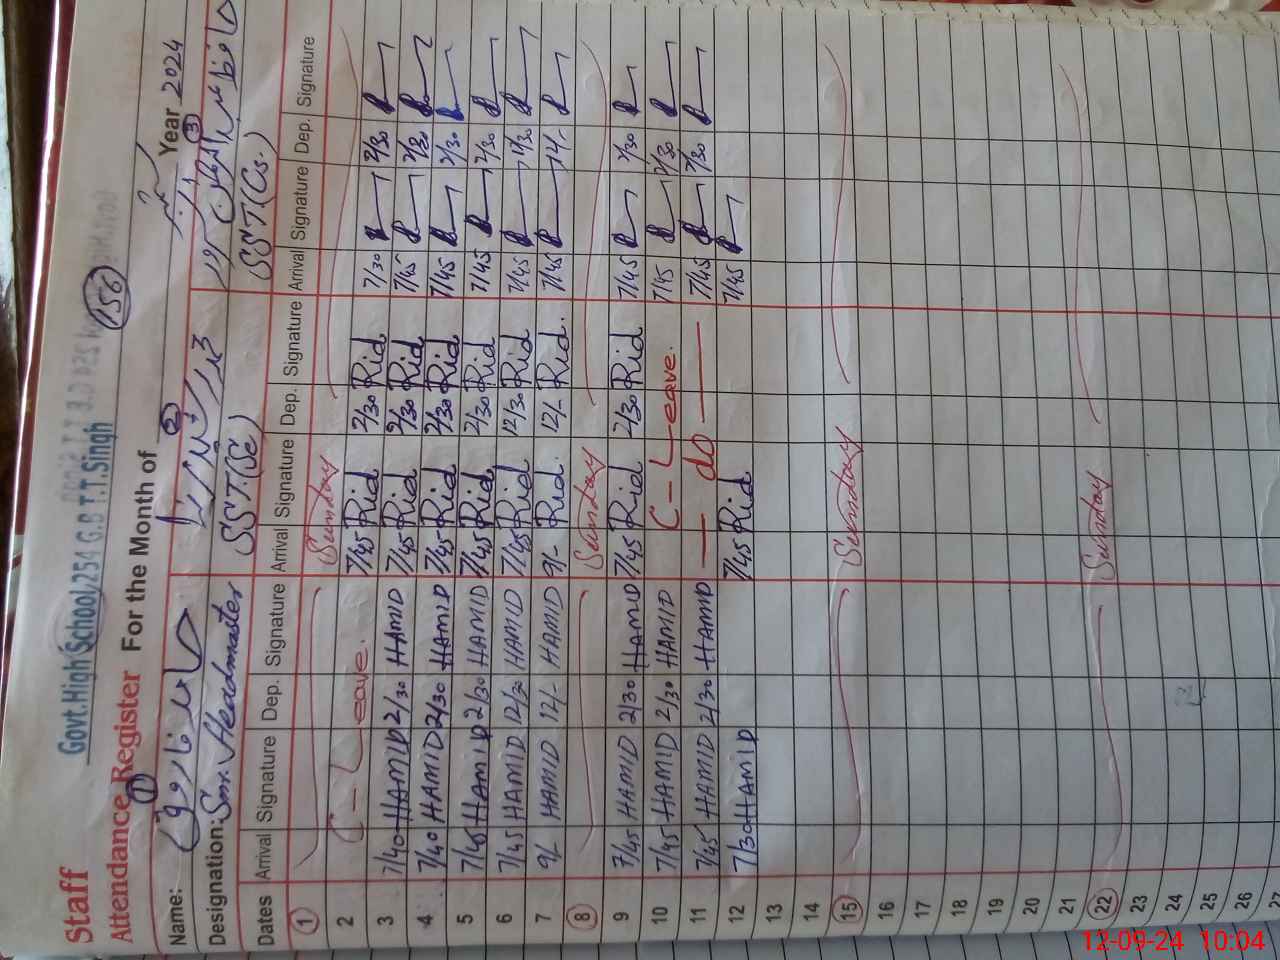 Govt.High School,254 G.B T.T.Singh
Staff
Attendance Register For the Month of Year 2024
156
Name: 1 2 3
Designation: Snr. Headmaster SST(Sc) SST(Cs.)
Dates Arrival Signature Dep. Signature Arrival Signature Dep. Signature Arrival Signature Dep. Signature
1 Sunday
2 C-Leave. 7/45 Rid 2/30 Rid 7/30 2/30
3 7/40 HAMID 2/30 HAMID 7/45 Rid 2/30 Rid 7/45 2/30
4 7/40 HAMID 2/30 HAMID 7/45 Rid 2/30 Rid 7/45 2/30
5 7/45 HAMID 2/30 HAMID 7/45 Rid 2/30 Rid 7/45 2/30
6 7/45 HAMID 12/30 HAMID 7/45 Rid 12/30 Rid 7/45
7 9/- HAMID 12/- HAMID 9/- Rid. 12/- Rid. 7/45
8 Sunday
9 7/45 HAMID 2/30 HAMID 7/45 Rid 2/30 Rid 7/45 2/30
10 7/45 HAMID 2/30 HAMID C-Leave. 7/45 2/30
11 7/45 HAMID 2/30 HAMID — do — 7/45 2/30
12 7/30 HAMID 7/45 Rid 7/45
13
14
15 Sunday
16
17
18
19
20
21
22 Sunday
23
24
25
26
27
12-09-24 10:04